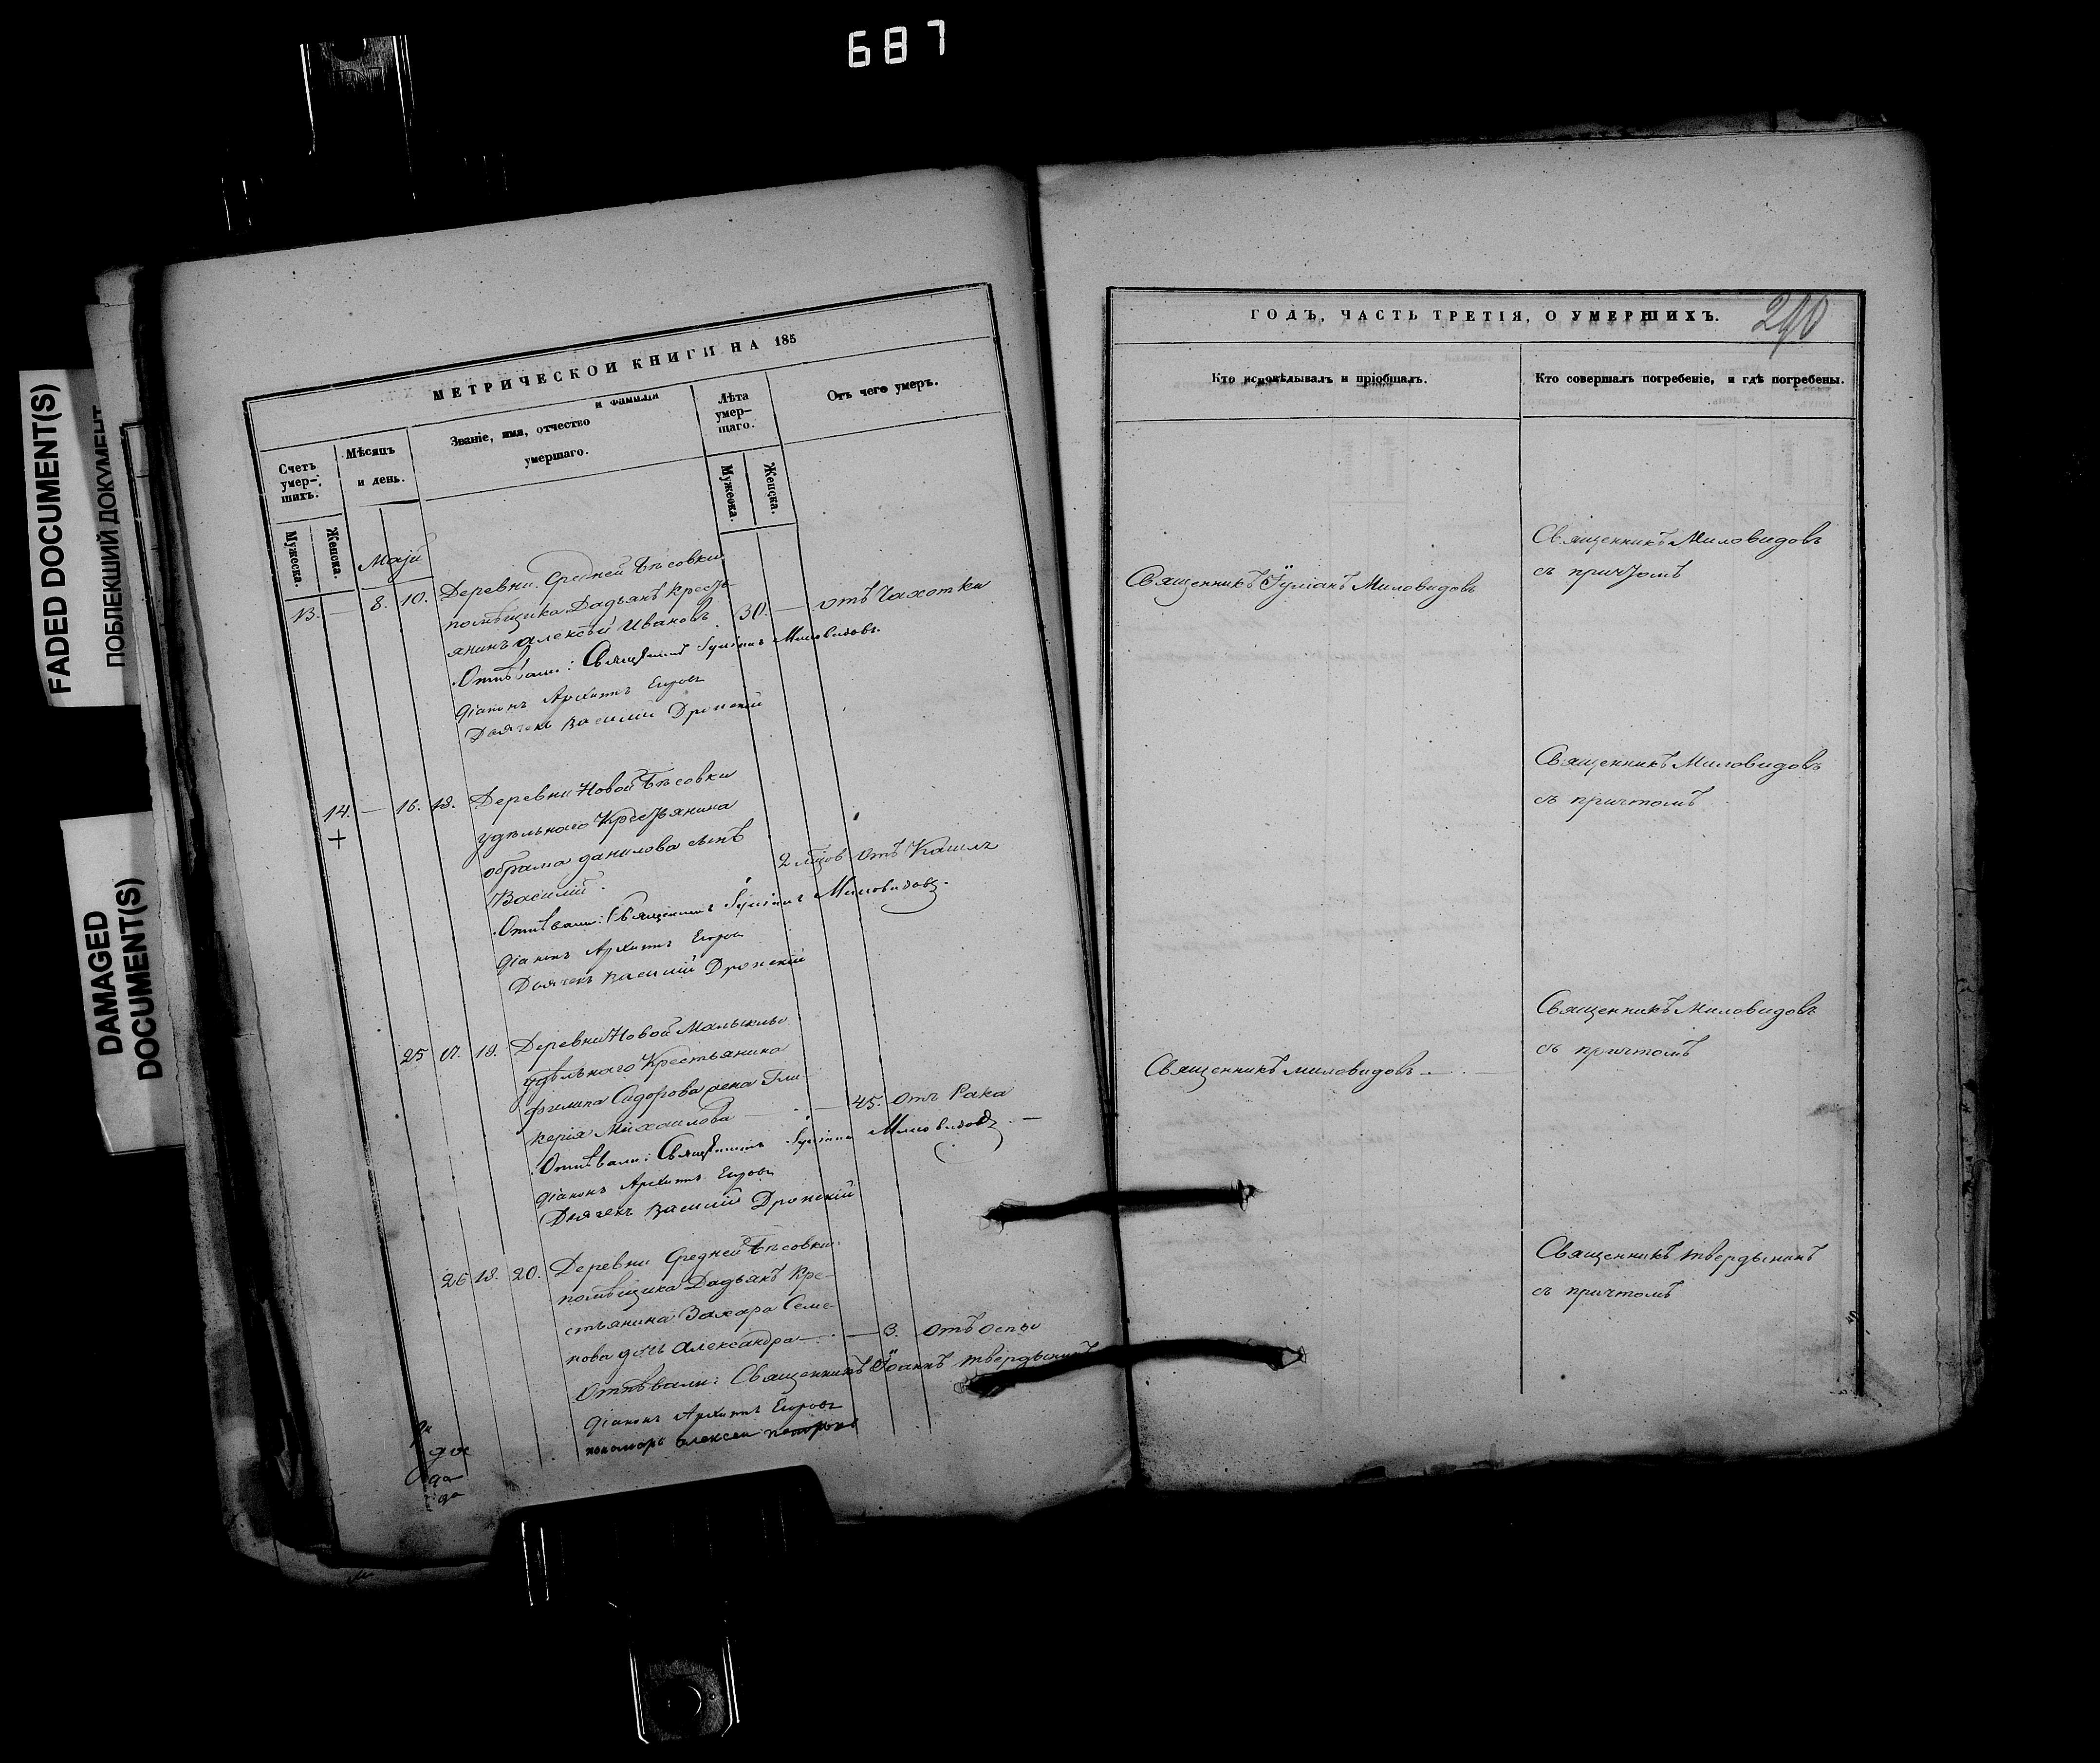 687
FADED DOCUMENT(S)
ПОБЛЕКШИЙ ДОКУМЕНТ
DAMAGED
DOCUMENT(S)
МЕТРИЧЕСКОЙ КНИГИ НА 185
Счетъ умер-шихъ.
Мѣсяцъ и день.
Званіе, имя, отчество и фамилія умершаго.
Лѣта умер-шаго.
Отъ чего умеръ.
Мужеска.
Женска.
Мужеска.
Женска.
Маія
13. — 8. 10. Деревни Средней Бѣсовки
помѣщика Дадьянъ кресть-
янинъ Алексѣй Ивановъ 30. — отъ Чахотки
Отпѣвали: Священникъ Іуліанъ Миловидовъ.
Діаконъ Архипъ Егоровъ
Дьячекъ Василій Дронскій
14. — 16. 18. Деревни Новой Бѣсовки
удѣльнаго Крестьянина
Абрама Данилова сынъ
Василій 2 мѣсяцов отъ Кашля
+
Отпѣвали: Священникъ Іуліанъ Миловидовъ.
Діаконъ Архипъ Егоровъ
Дьячекъ Василій Дронскій
25 17. 18. Деревни Новой Малыклы
удѣльнаго Крестьянина
Филипа Сидорова жена Гли-
керія Михаилова — 45. отъ Рака
Отпѣвали: Священникъ Іуліанъ Миловидовъ. —
Діаконъ Архипъ Егоровъ
Дьячекъ Василій Дронскій
26 18. 20. Деревни Средней Бѣсовки
помѣщика Дадьянъ Кре-
стьянина Захара Семе-
нова дочь Александра — 3. отъ оспы
Отпѣвали: Священникъ Іоаннъ Твердынинъ
Діаконъ Архипъ Егоровъ
пономарь Алексей Петровъ
ГОДЪ, ЧАСТЬ ТРЕТІЯ, О УМЕРШИХЪ.
290
Кто исповѣдывалъ и пріобщалъ.
Кто совершалъ погребеніе, и гдѣ погребены.
Священникъ Іуліанъ Миловидовъ
Священникъ Миловидовъ
съ причтомъ
Священникъ Миловидовъ
съ причтомъ
Священникъ Миловидовъ
Священникъ Миловидовъ
съ причтомъ
Священникъ Твердынинъ
съ причтомъ